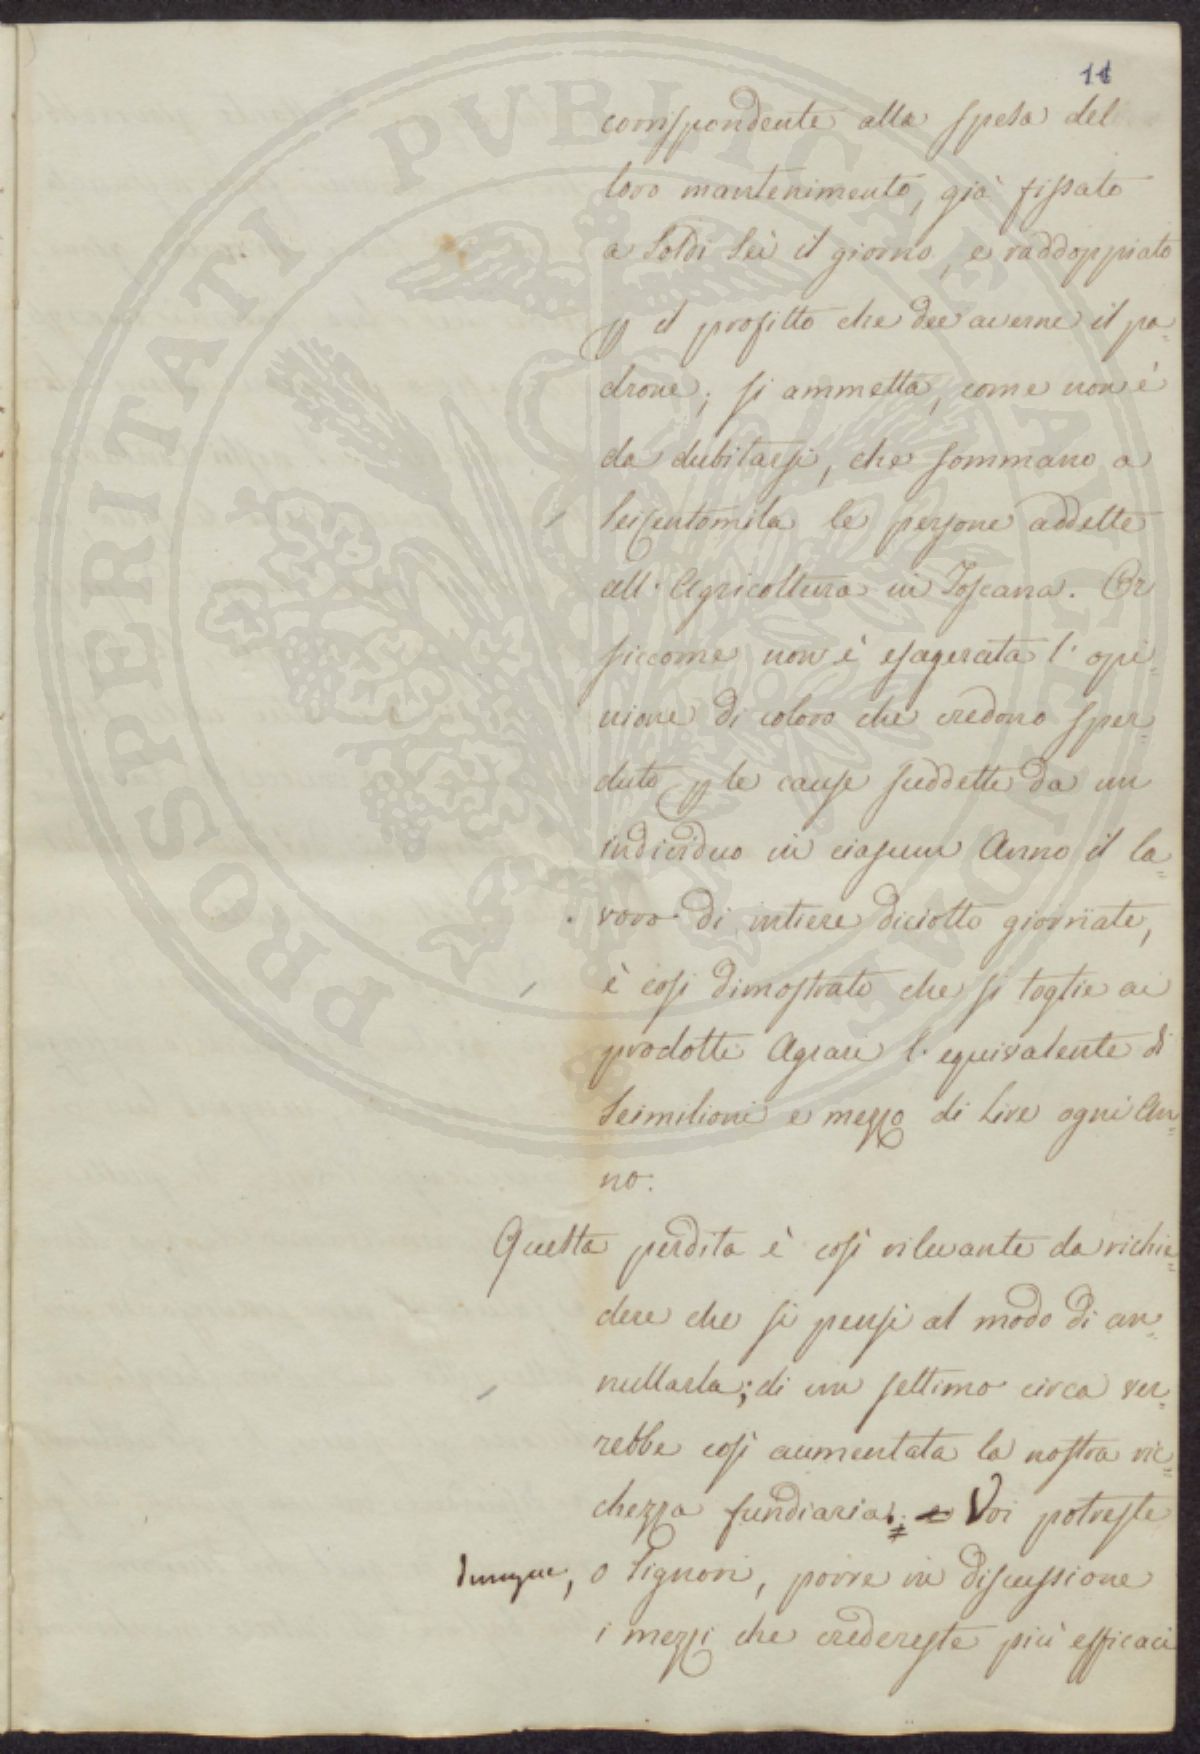 11
corrispondente alla spesa del
loro mantenimento, già fissato
a Soldi Sei il giorno, e raddoppiato
p il profitto che dee averne il pa=
drone; si ammetta, come non è
da dubitarsi, che sommano a
Seicentomila le persone addette
all'Agricoltura in Toscana. Or
siccome non è esagerata l'opi=
nione di coloro che credono sper=
duto p le cause suddette da un
individuo in ciascun Anno il la=
voro di intiere diciotto giornate,
è così dimostrato che si toglie ai
prodotti Agrari l'equivalente di
Seimilioni e mezzo di Lire ogni An=
no.
Questa perdita è così rilevante da richie=
dere che si pensi al modo di an=
nullarla; di un settimo circa ver=
rebbe così aumentata la nostra ric=
chezza fundiaria. Voi potreste
dunque, o Signori, porre in discussione
i mezzi che credereste più efficaci
PROSPERITATI PUBLICAE AUGENDAE